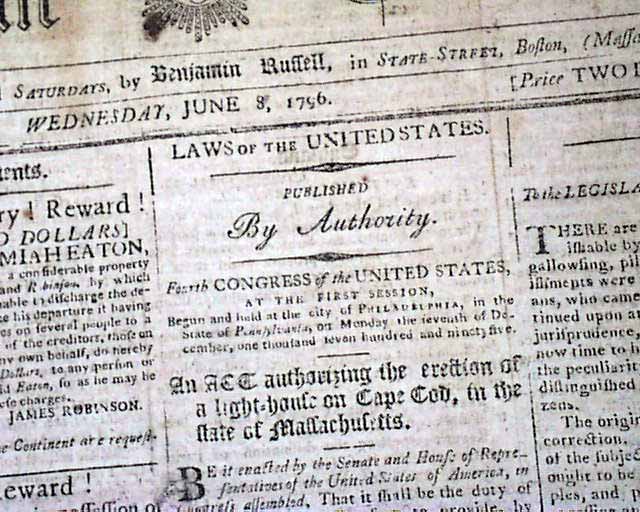 SATURDAYS, by Benjamin Russell, in STATE-STREET, Boston, (Massa
WEDNESDAY, JUNE 8, 1796.
[Price TWO D
ents.
ry! Reward!
D DOLLARS]
MIAH EATON,
a considerable property
and Robinson, by which
nable to discharge the de-
ce his departure it having
es on several people to a
of the creditors, those on
ny own behalf, do hereby
Dollars, to any person or
id Eaton, so as he may be
ese charges.
JAMES ROBINSON.
he Continent are request-
Reward!
LAWS OF THE UNITED STATES.
PUBLISHED
By Authority.
Fourth CONGRESS of the UNITED STATES,
AT THE FIRST SESSION,
Begun and held at the city of PHILADELPHIA, in the
State of Pennsylvania, on Monday the seventh of De-
cember, one thousand seven hundred and ninety-five.
An ACT authorizing the erection of
a light-house on Cape Cod, in the
state of Massachusetts.
BE it enacted by the Senate and House of Repre-
sentatives of the United States of America, in
Congress assembled, That it shall be the duty of
to provide, by
To the LEGISLA
THERE are
ishable by
gallowsing, pil
ishments were
ans, who came
tinued upon a
jurisprudence,
now time to h
the peculiarit
distinguished
zens.
The origin
correction.
of the subject
ought to be
ples, and p